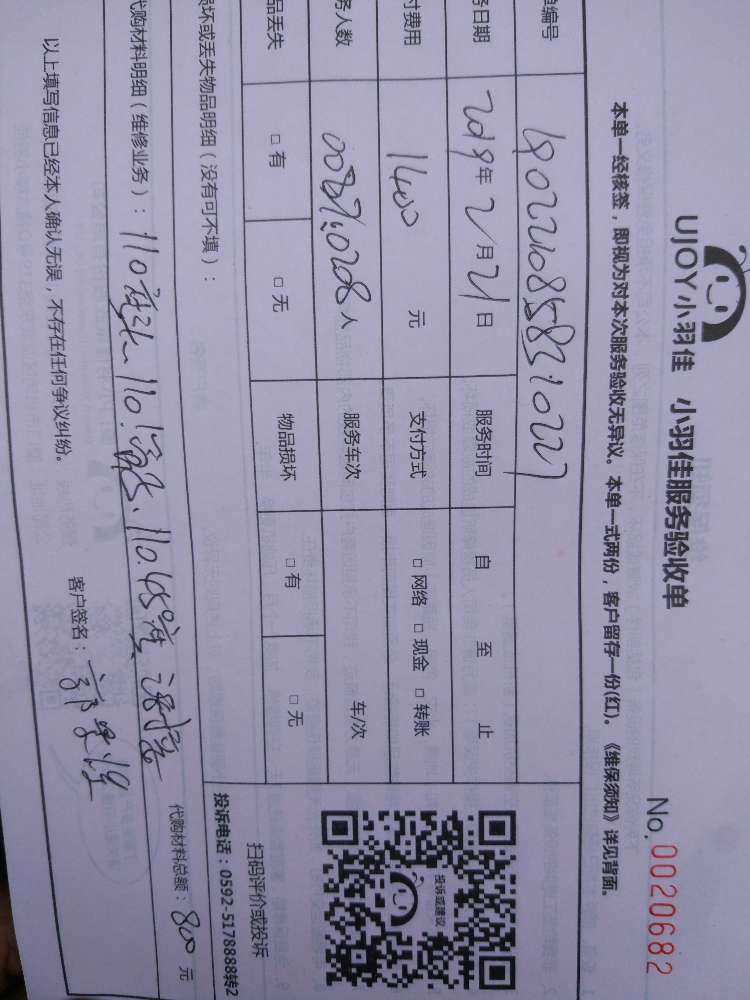 UJOY小羽佳 小羽佳服务验收单
No. 0020682
本单一经核签，即视为对本次服务验收无异议。本单一式两份，客户留存一份(红)。《维保须知》详见背面。
单编号
务日期 2019年2月21日 服务时间 自 至 止
付费用 1400 元 支付方式 □网络 □现金 □转账
务人数 人 服务车次 车/次
品丢失 □有 □无 物品损坏 □有 □无
投诉或建议
扫码评价或投诉
投诉电话：0592-5178888转2
损坏或丢失物品明细（没有可不填）：
代购材料明细（维修业务）：110 110 110.45
代购材料总额：800 元
以上填写信息已经本人确认无误，不存在任何争议纠纷。
客户签名：